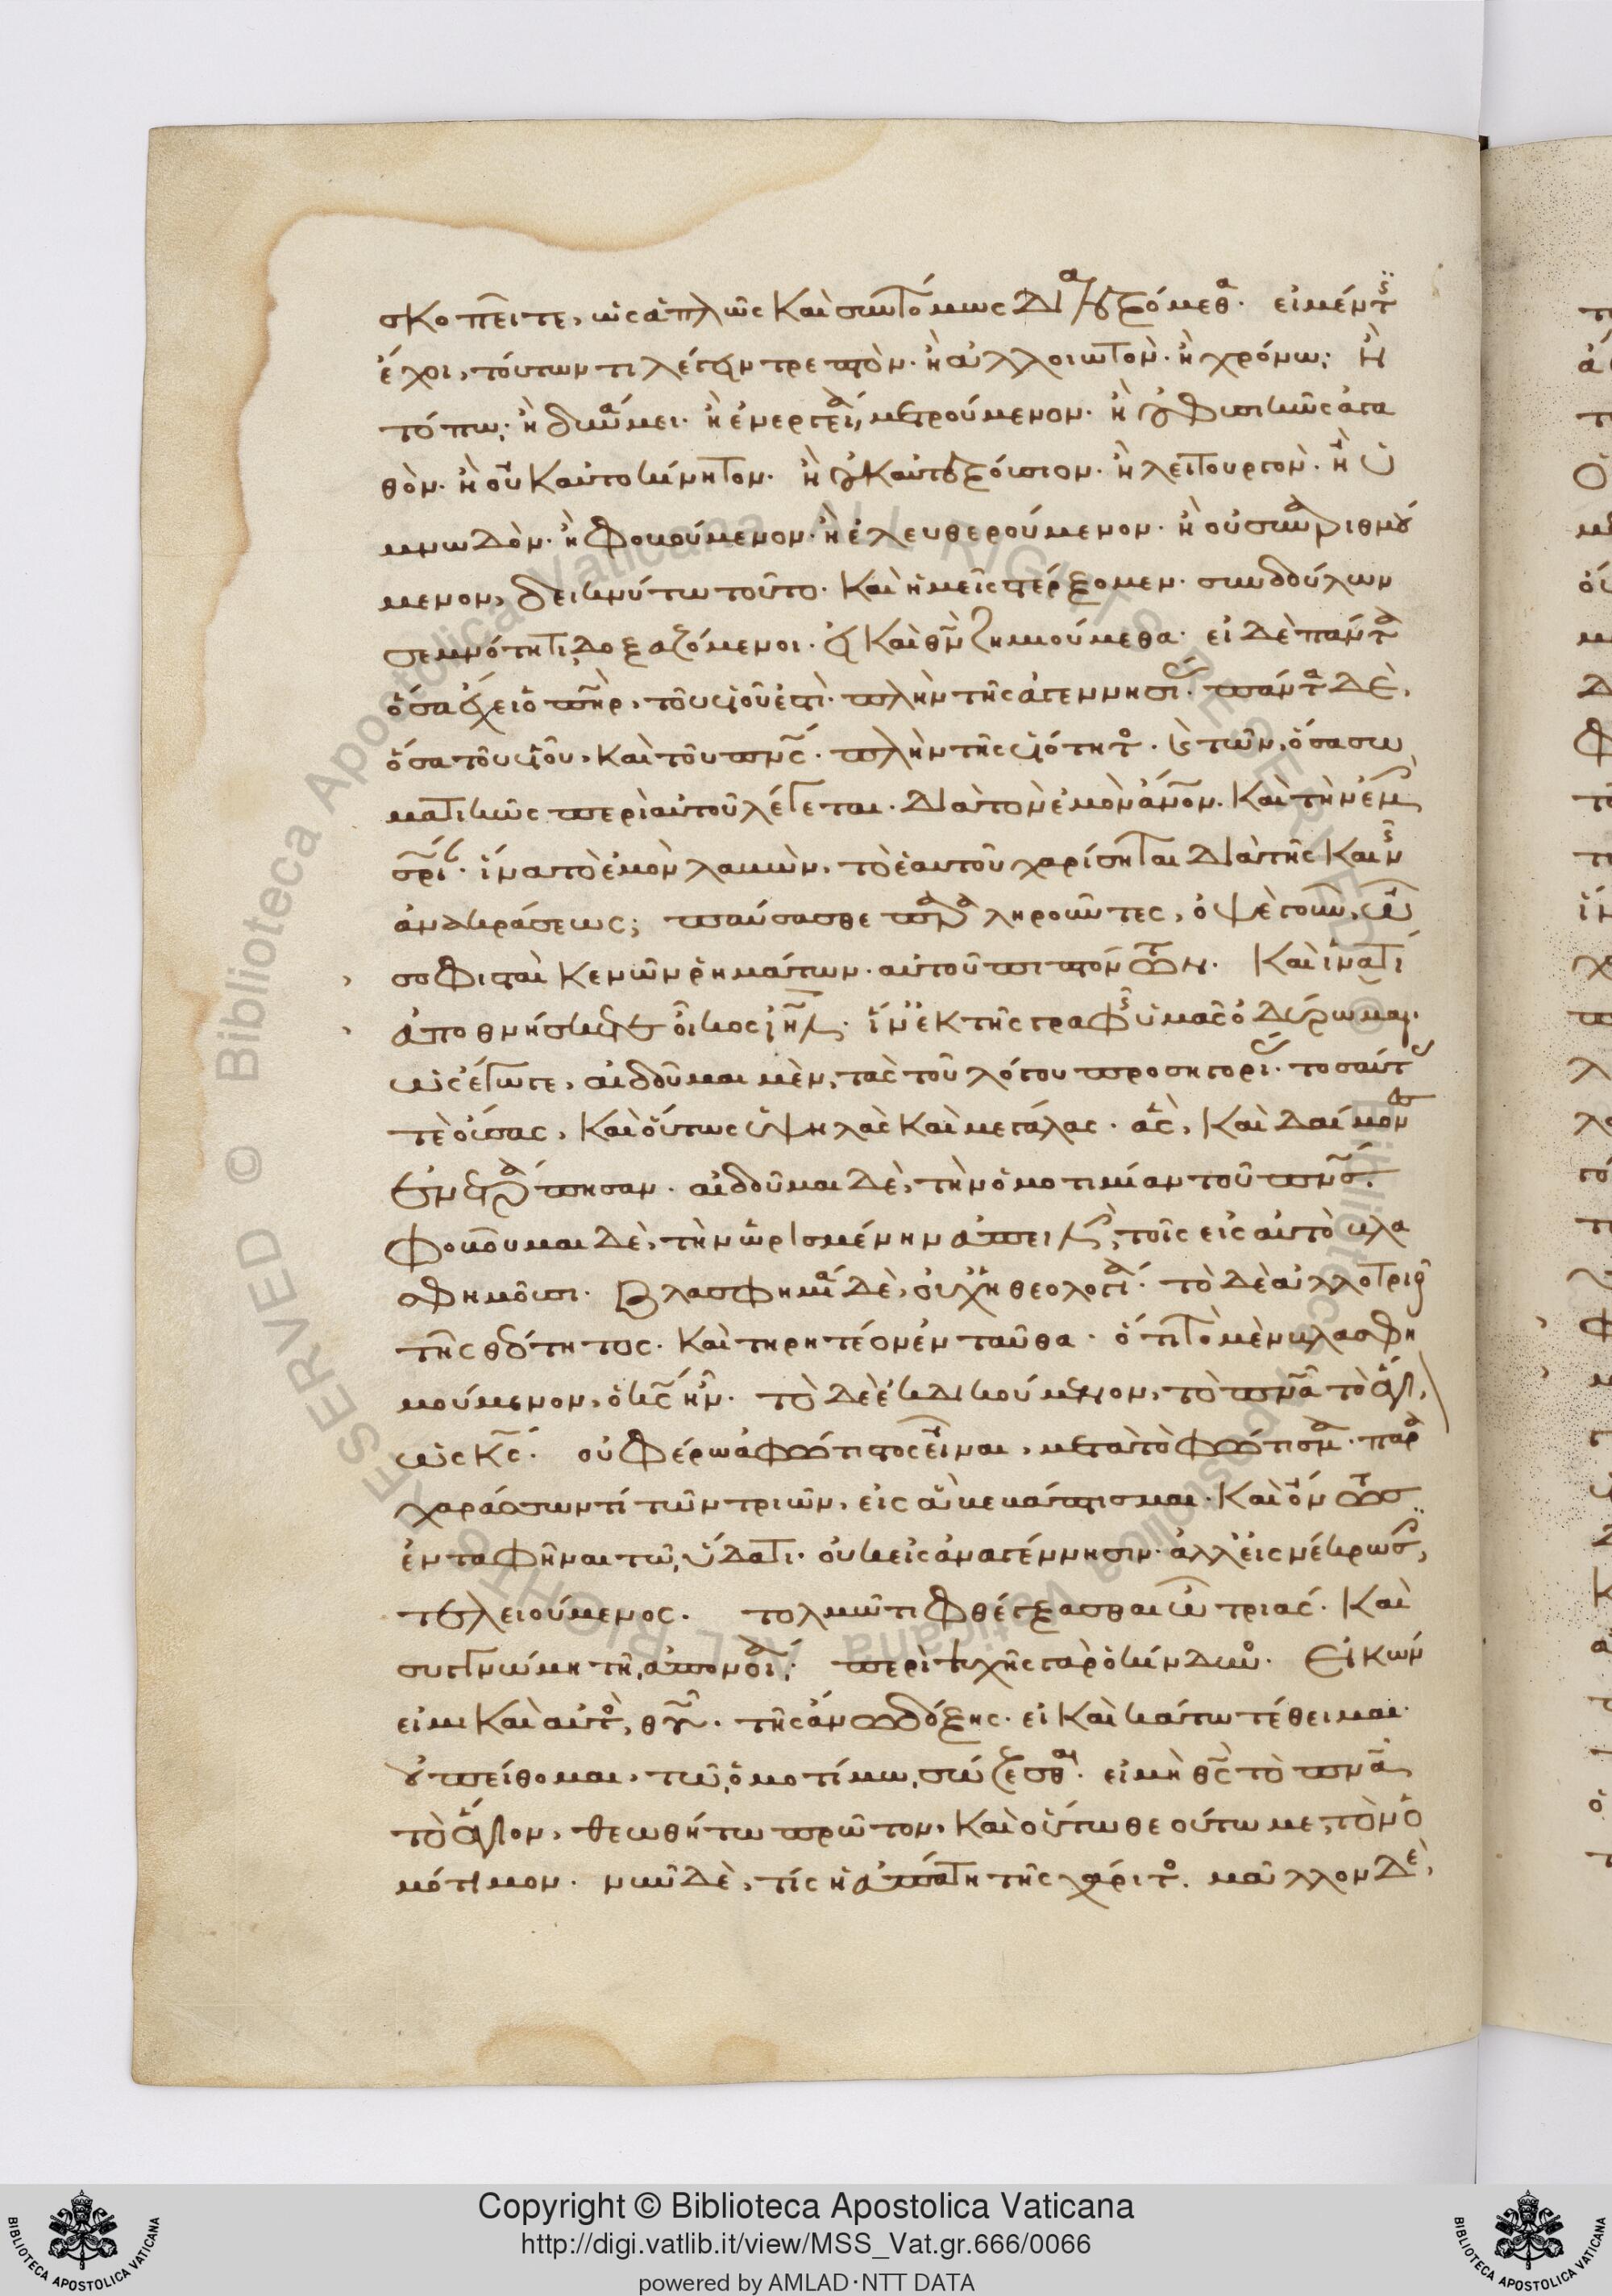 σκοπεῖτε, ὡς ἁπλῶς καὶ συντόμως διαλεξόμεθα. εἰ μέν τις
ἔχοι, τούτων τι λέγειν τρεπτὸν. ἢ ἀλλοιωτὸν. ἢ χρόνω; ἢ
τόπω; ἢ δυνάμει. ἢ ἐνεργεία, μετρούμενον. ἢ οὐ φυσικῶς ἀγα
θὸν. ἢ οὐκ αὐτοκίνητον. ἢ οὐκ αὐτεξούσιον. ἢ λειτουργὸν. ἢ ὑ
μνωδὸν. ἢ φοβούμενον. ἢ ἐλευθερούμενον. ἢ οὐ συναριθμού
μενον, δεικνύτω τοῦτο. καὶ ἡμεῖς στέρξομεν. συνδούλων
σεμνότητι δοξαζόμενοι. εἰ καὶ θεὸν ζημιούμεθα. εἰ δὲ πάντα
ὅσα ἔχει ὁ πατὴρ, τοῦ υἱοῦ ἐστὶ. πλὴν τῆς ἀγεννησίας. πάντα δὲ,
ὅσα τοῦ υἱοῦ, καὶ τοῦ πνεύματος. πλὴν τῆς υἱότητος. καὶ τῶν, ὅσα σω
ματικῶς περὶ αὐτοῦ λέγεται. διὰ τὸν ἐμὸν ἄνθρωπον. καὶ τὴν ἐμὴν
σωτηρίαν. ἵνα τὸ ἐμὸν λαβὼν, τὸ ἑαυτοῦ χαρίσηται διὰ τῆς καινῆς
ἀνακράσεως; παύσασθε παραληροῦντες, ὀψὲ γοῦν, ὦ
σοφισταὶ κενῶν ῥημάτων. αὐτοῦ πιπτόντων. καὶ ἱνατί
ἀποθνήσκετε οἶκος ἰσραήλ. ἵν' ἐκ τῆς γραφῆς ὑμᾶς ὀδύρωμαι.
ὡς ἔγωγε, αἰδοῦμαι μὲν, τὰς τοῦ λόγου προσηγορίας. τοσαύτας
τὲ οὔσας, καὶ οὕτως ὑψηλὰς καὶ μεγάλας. ἃς, καὶ δαίμονες
ἐνετράπησαν. αἰδοῦμαι δὲ, τὴν ὁμοτιμίαν τοῦ πνεύματος.
φοβοῦμαι δὲ, τὴν ὡρισμένην ἀπειλὴν, τοῖς εἰς αὐτὸ βλα
σφημοῦσι. βλασφημία δὲ, οὐχ ἡ θεολογία. τὸ δὲ ἀλλοτριοῦν
τῆς θεότητος. καὶ τηρητέον ἐνταῦθα. ὅτι τὸ μὲν βλασφη
μούμενον, ὁ κύριος ἦν. τὸ δὲ ἐκδικούμενον, τὸ πνεῦμα τὸ ἅγιον,
ὡς κύριος. οὐ φέρω ἀφώτιστος εἶναι, μετὰ τὸ φώτισμα. παρα
χαράσσων τί τῶν τριῶν, εἰς ἃ βεβάπτισμαι. καὶ ὄντως
ἐνταφῆναι τῶ ὕδατι. οὐκ εἰς ἀναγέννησιν. ἀλλ' εἰς νέκρωσιν,
τελειούμενος. τολμῶ τι φθέγξασθαι ὦ τριὰς. καὶ
συγγνώμη τῆ ἀπονοία; περὶ ψυχῆς γὰρ ὁ κίνδυνος. εἰκών
εἰμι καὶ αὐτὸς, θεοῦ. τῆς ἄνω δόξης. εἰ καὶ κάτω τέθειμαι.
οὐ πείθομαι, τῶ ὁμοτίμω, σώζεσθαι. εἰ μὴ θεὸς τὸ πνεῦμα
τὸ ἅγιον, θεωθήτω πρῶτον, καὶ οὕτω θεούτω με, τὸν ὁ
μότιμον. νῦν δὲ, τίς ἡ ἀπάτη τῆς χάριτος. μᾶλλον δὲ,
Copyright © Biblioteca Apostolica Vaticana
http://digi.vatlib.it/view/MSS_Vat.gr.666/0066
powered by AMLAD·NTT DATA
BIBLIOTECA APOSTOLICA VATICANA
BIBLIOTECA APOSTOLICA VATICANA